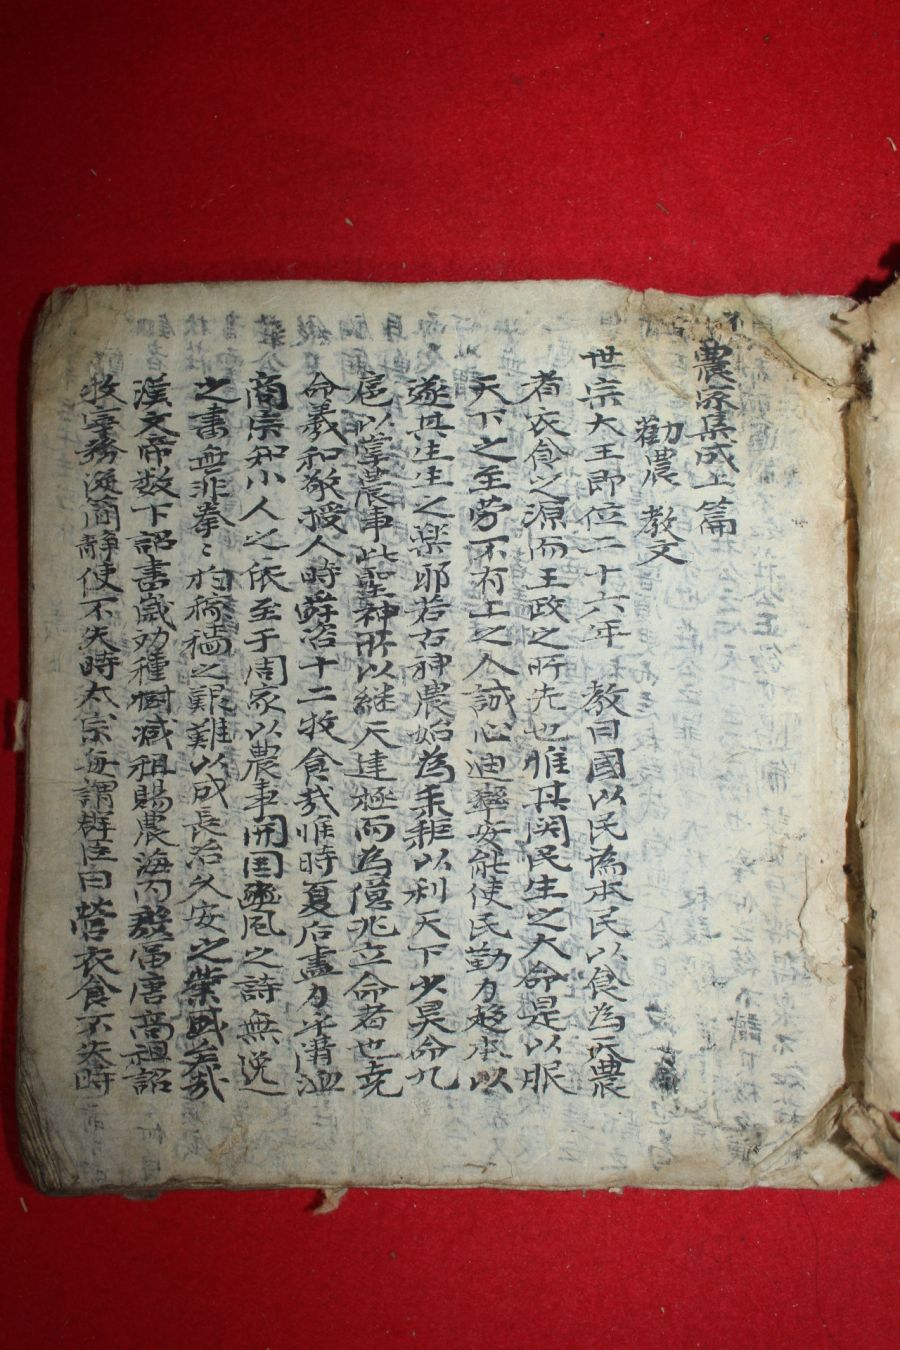 農家集成上篇
勸農 教文
世宗大王即位二十六年 教曰國以民為本民以食為天農
者衣食之源而王政之所先也惟其関民生之大命是以服
天下之至劳不有上之人誠心迪率安能使民勤力趍本以
遂其生生之楽耶若古神農始為耒耟以利天下少昊命九
扈以掌農事此聖神所以継天建極而為億兆立命者也堯
命羲和敬授人時舜咨十二牧食哉惟時夏后盡力乎溝洫
商宗知小人之依至于周家以農事開国豳風之詩無逸
之書無非拳〻於稼穡之艱難以成長治久安之業盛矣哉
漢文帝数下詔書歳劝種樹减租賜農海内殷富唐高祖詔
牧宰務従簡静使不失時太宗每謂群臣曰营衣食不失時